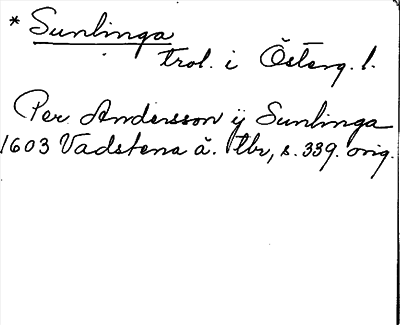 * Sunlinga
trol. i Österg. l.
Per Andersson ÿ Sunlinga
1603 Vadstena ä. tbr, s. 339. orig.